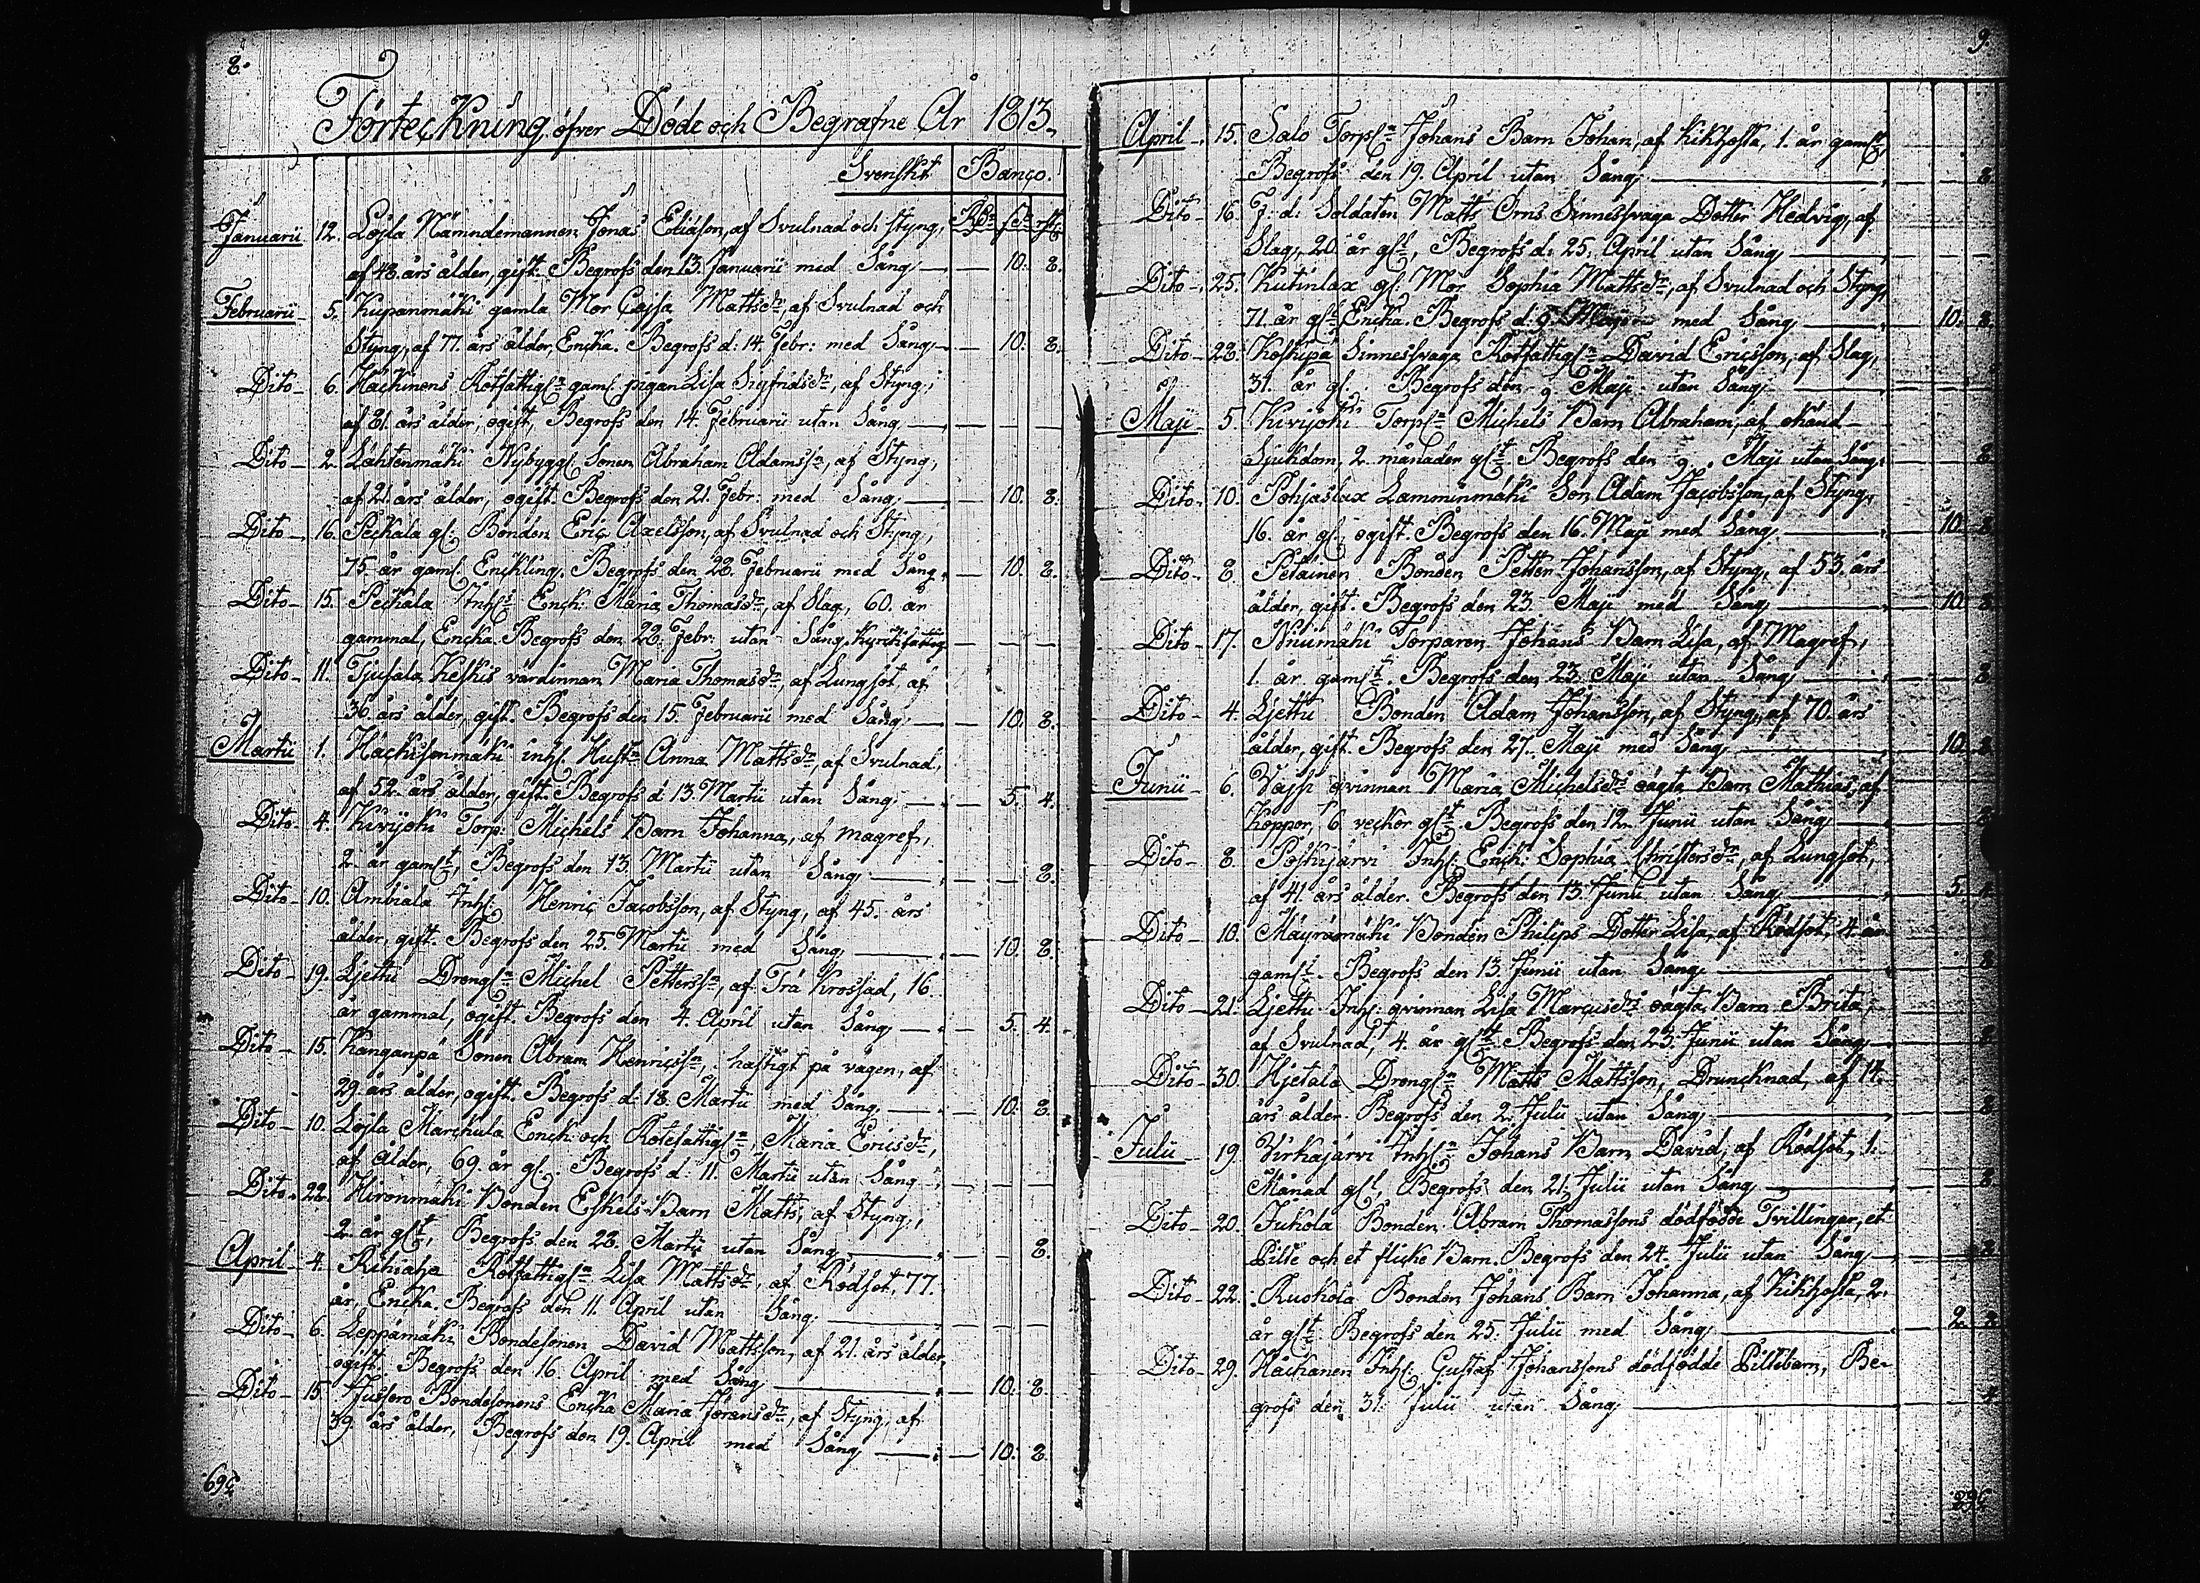 8.
Förteckning öfver Döde och Begrafne År 1813.
Svenskt Banco.
RD:r sk: rst:
Januarii 12. Löjla Nämndemannen Jonas Eliäson, af Svulnad och styng,
af 48. års ålder, gift. Begrofs den 13. Januarii med Sång — 10. 8.
Februarii 5. Kupanmäki gamla Mor Cajsa Mattsdr, af Svulnad och
Styng, af 77. års ålder, Encka. Begrofs d: 14. Febr: med Sång — 10. 8.
Dito 6. Häckinens Rotfattigs:n gaml. pigan Lisa Sigfridsdr, af Styng,
af 81. års ålder, ogift, Begrofs den 14. Februarii utan Sång —
Dito 2. Lähtenmäki Nybygg: Sonen Abraham Adamss:n, af Styng,
af 21. års ålder, ogift. Begrofs den 21. Febr: med Sång — 10. 8.
Dito 16. Peckala gl. Bonden Eric Axelsson, af Svulnad och Styng,
75. år gaml. Enckling. Begrofs den 28. Februarii med Sång — 10. 8.
Dito 15. Peckala Inh:s Enck: Maria Thomasdr, af Slag, 60. år
gammal, Encka. Begrofs den 28. Febr: utan Sång. Kyrckfattig
Dito 11. Tjusala Keskis värdinnan Maria Thomasdr, af Lungsot, af
36. års ålder, gift. Begrofs den 15. Februarii med Sång — 10. 8.
Martii 1. Häckisenmäki inh: Hust: Anna Mattsdr, af Svulnad,
af 52. års ålder, gift. Begrofs d. 13. Martii utan Sång — 5. 4.
Dito 4. Kivijoki Torp: Michels Barn Johanna, af magref,
2. år gaml:t, Begrofs den 13. Martii utan Sång — 8.
Dito 10. Ambiala Inh: Henric Jacobsson, af Styng, af 45. års
ålder, gift. Begrofs den 25. Martii med Sång — 10. 8.
Dito 19. Ljettu Drengs:n Michel Petterss:n, af Trä Krossad, 16.
år gammal, ogift. Begrofs den 4. April utan Sång — 5. 4.
Dito 15. Kanganpä Sonen Abram Henricss:n, hastigt på vägen, af
29. års ålder, ogift. Begrofs d: 18. Martii med Sång — 10. 8.
Dito 10. Löjla Marckula Enck: och Rotefattigs:n, Maria Ericsdr,
af ålder, 69. år gl. Begrofs d: 11. Martii utan Sång —
Dito 22. Hironmäki Bonden Eskels Barn Matts, af Styng,
2. år gl:t, Begrofs den 28. Martii utan Sång — 8.
April 4. Rihiaha Rotfattigs:n Lisa Mattsdr, af Rödsot, 77.
år, Encka. Begrofs den 11. April utan Sång —
Dito 6. Leppämäki Bondesonen David Mattsson, af 21. års ålder,
ogift. Begrofs den 16. April med Sång — 10. 8.
Dito 15. Jussoro Bondesonens Encka Maria Joransdr, af Styng, af
39. års ålder, Begrofs den 19. April med Sång — 10. 8.
9.
April 15. Salo Torps:n Johans Barn Johan, af Kikhosta, 1. år gaml:t,
Begrofs den 19. April utan Sång — 8.
Dito 16. F: d: Soldaten Matts Örns Sinnessvaga Dotter Hedvig, af
Slag, 20. år gl:t, Begrofs d: 25. April utan Sång —
Dito 25. Kutinlax gl. Mor Sophia Mattsdr, af Svulnad och Styng,
71. år gl:t Encka. Begrofs d: 9. med Sång — 10. 8.
Dito 28. Koskipä Sinnessvaga Rotfattigs:n David Ericsson, af Slag,
31. år gl. Begrofs den 9. Maji utan Sång —
Maji 5. Kivijoki Torps:n Michels Barn Abraham, af okänd
Sjukdom, 2. månader gl:t Begrofs den 9. Maji utan Sång — 8.
Dito 10. Pohjaslax Lamminmäki Son Adam Jacobsson, af Styng,
16. år gl. ogift. Begrofs den 16. Maji med Sång — 10. 8.
Dito 8. Petäinen Bonden Petter Johansson, af Styng, af 53. års
ålder, gift. Begrofs den 23. Maji med Sång — 10. 8.
Dito 17. Niinimäki Torparen Johans Barn Lisa, af Magref,
1. år gaml:t. Begrofs den 23. Maji utan Sång — 8.
Dito 4. Ljettu Bonden Adam Johansson, af Styng, af 70. års
ålder, gift. Begrofs den 27. Maji med Sång — 10. 8.
Junii 6. Vässi qvinnan Maria Michelsdrs oägta Barn Mathias, af
Koppor, 6. veckor gl:t. Begrofs den 12. Junii utan Sång — 8.
Dito 8. Poskijärvi Inh: Enck: Sophia Christersdr, af Lungsot,
af 41. års ålder. Begrofs den 13. Junii utan Sång — 5. 4.
Dito 10. Mäyrämäki Bonden Philips Dotter Lisa, af Rödsot, 4. år
gaml:t. Begrofs den 13. Junii utan Sång — 8.
Dito 21. Ljettu Inh: qvinnan Lisa Marcusdrs oägta Barn Brita,
af Svulnad, 4. år gl:t Begrofs den 23. Junii utan Sång — 8.
Dito 30. Hjetala Drengs:n Matts Mattsson, Druncknad, af 14.
års ålder. Begrofs den 2. Julii utan Sång — 8.
Julii 19. Virkajärvi Inhs:n Johans Barn David, af Rödsot, 1.
Månad gl:t, Begrofs den 21. Julii utan Sång — 8.
Dito 20. Jukola Bonden Abram Thomassons dödfödde Tvillingar, et
Pilte och et flicke Barn. Begrofs den 24. Julii utan Sång — 8.
Dito 22. Ruokola Bonden Johans Barn Johanna, af Kikhosta, 2.
år gl:t Begrofs den 25. Julii med Sång — 2. 8.
Dito 29. Häckanen Inh: Gustaf Johanssons dödfödde Piltebarn, Be-
grofs den 31. Julii utan Sång — 4.